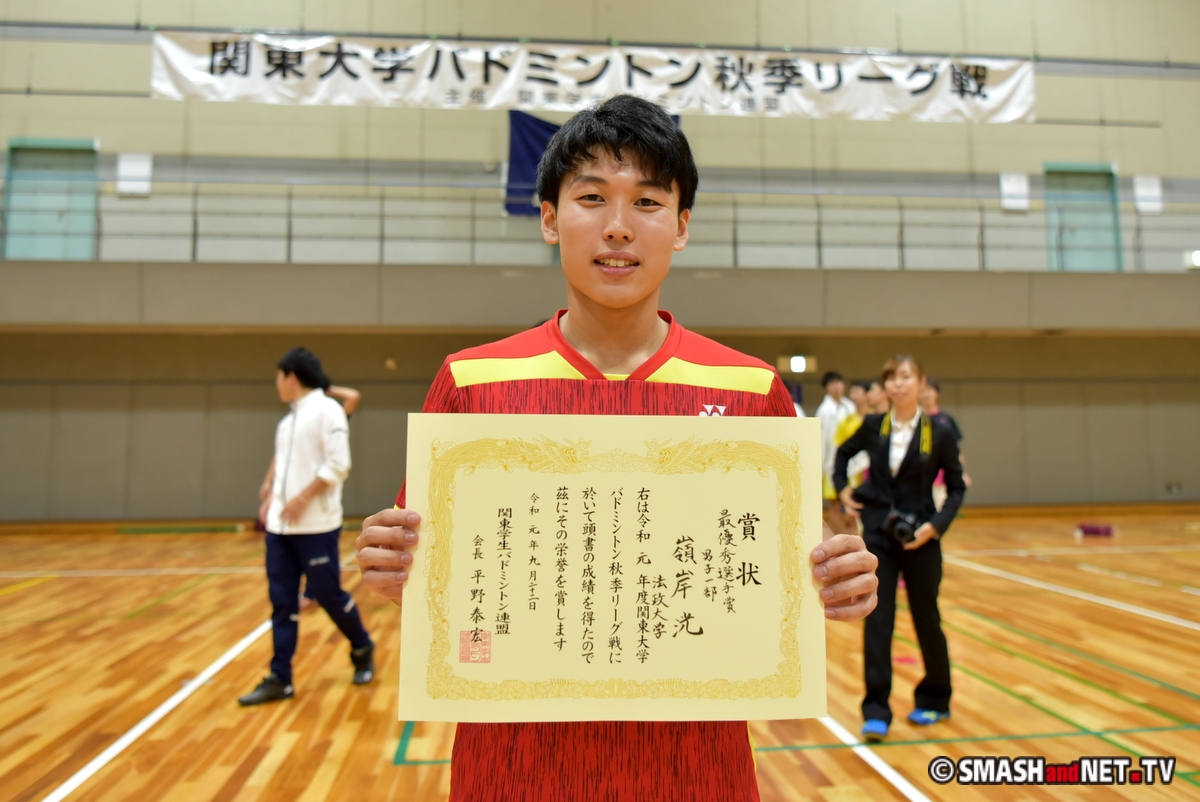 関東大学バドミントン秋季リーグ戦
主催 関東学生バドミントン連盟
賞状
最優秀選手賞
男子一部
法政大学
嶺岸洸
右は令和元年度関東大学
バドミントン秋季リーグ戦に
於いて頭書の成績を得たので
茲にその栄誉を賞します
令和元年九月二十二日
関東学生バドミントン連盟
会長 平野泰宏
©SMASHandNET.TV